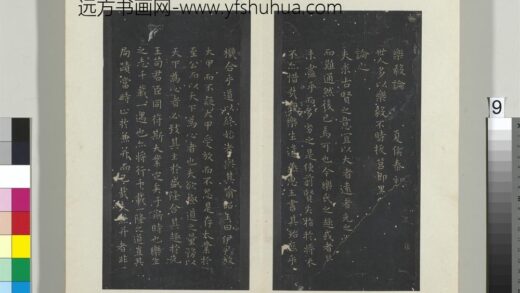 远方书画网-www.yfshuhua.com
9
樂毅論 夏侯泰初
世人多以樂毅不時拔莒即墨
論之
夫求古賢之意宜以大者遠者先之
而難通然後已焉可也今樂氏之趣或者其
未盡乎而多劣之是使前賢失指於將來
不亦惜哉觀樂生遺燕惠王書其殆庶乎
機合乎道以終始者與其喻昭王曰伊尹放
大甲而不疑大甲受放而不怨是存大業於
至公而以天下為心者也夫欲極道之量務以
天下為心者必致其主於盛隆合其趣於先
王苟君臣同符斯大業定矣于斯時也樂生
之志千載一遇也亦將行千載一隆之道豈其
局蹟當時止於兼并而已哉夫兼并者非